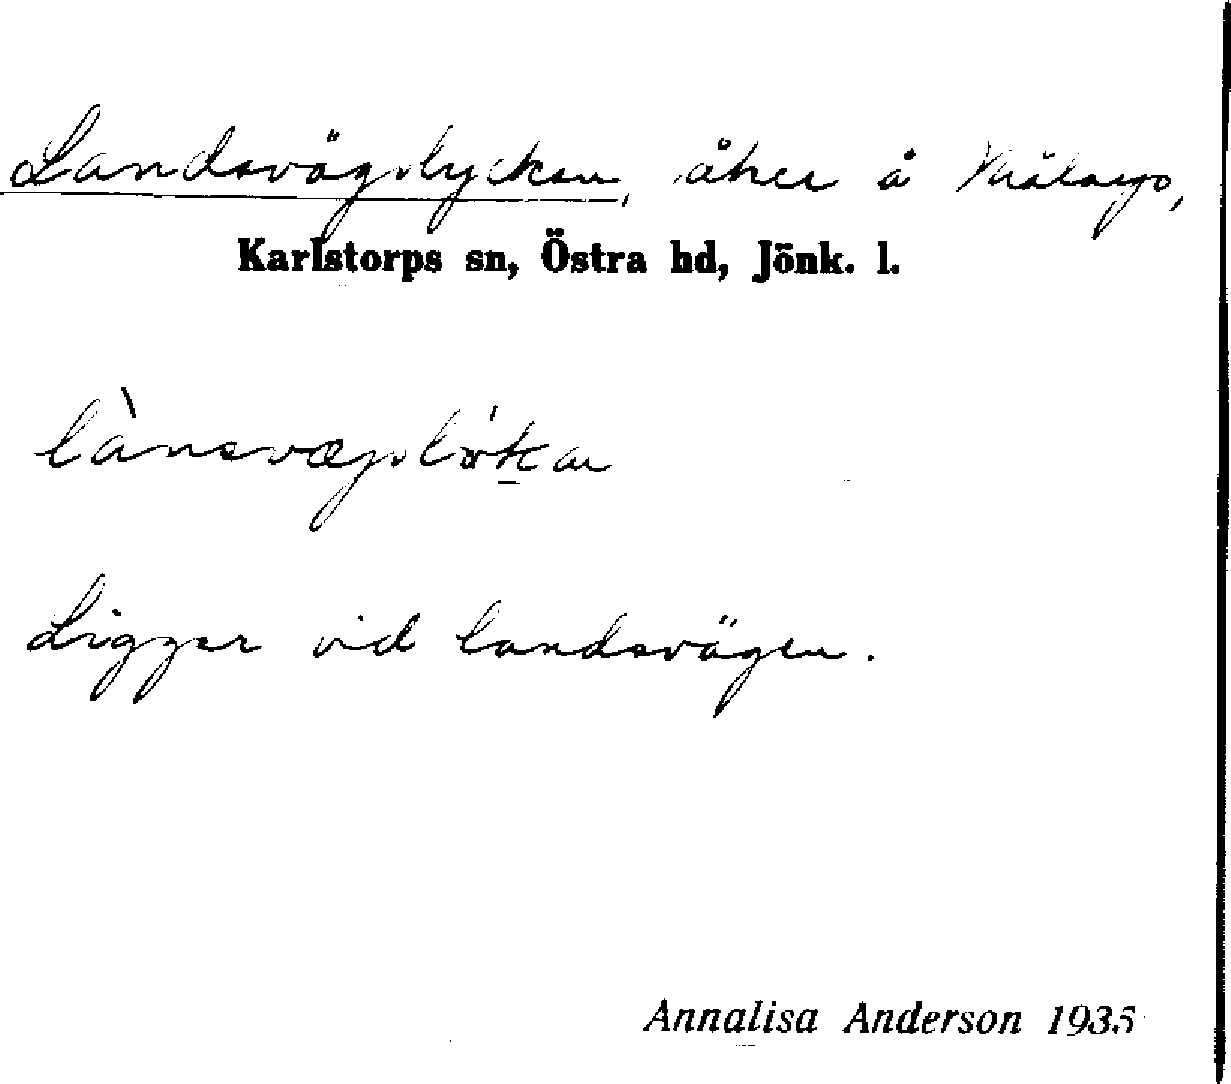 Landsvägslyckan, åker å Målarp,
Karlstorps sn, Östra hd, Jönk. l.
lànsvægslö́kan
Ligger vid landsvägen.
Annalisa Anderson 1935